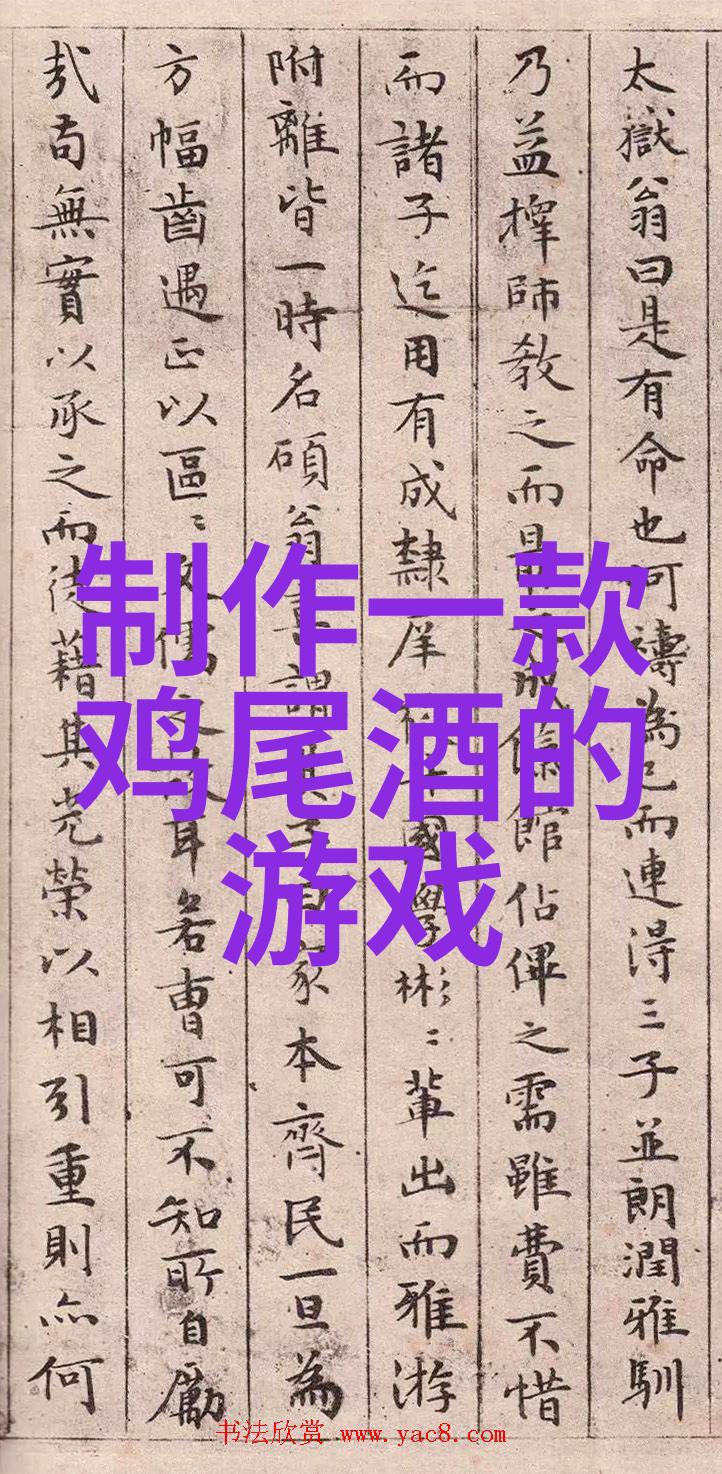 太嶽翁曰是有命也可禱為已而連得三子並朗潤雅馴
乃益擇師教之而館佔俾之需雖費不惜
而諸子迄用有成隸庠國學彬〻輩出而雅游
附離皆一時名碩翁喜謂其子曰家本齊民一旦為
方幅齒遇正以區〻文儒之耳若曹可不知所自勵
哉苟無實以承之而徒藉其光榮以相引重則亦何
制作一款
鸡尾酒的
游戏
书法欣赏 www.yac8.com